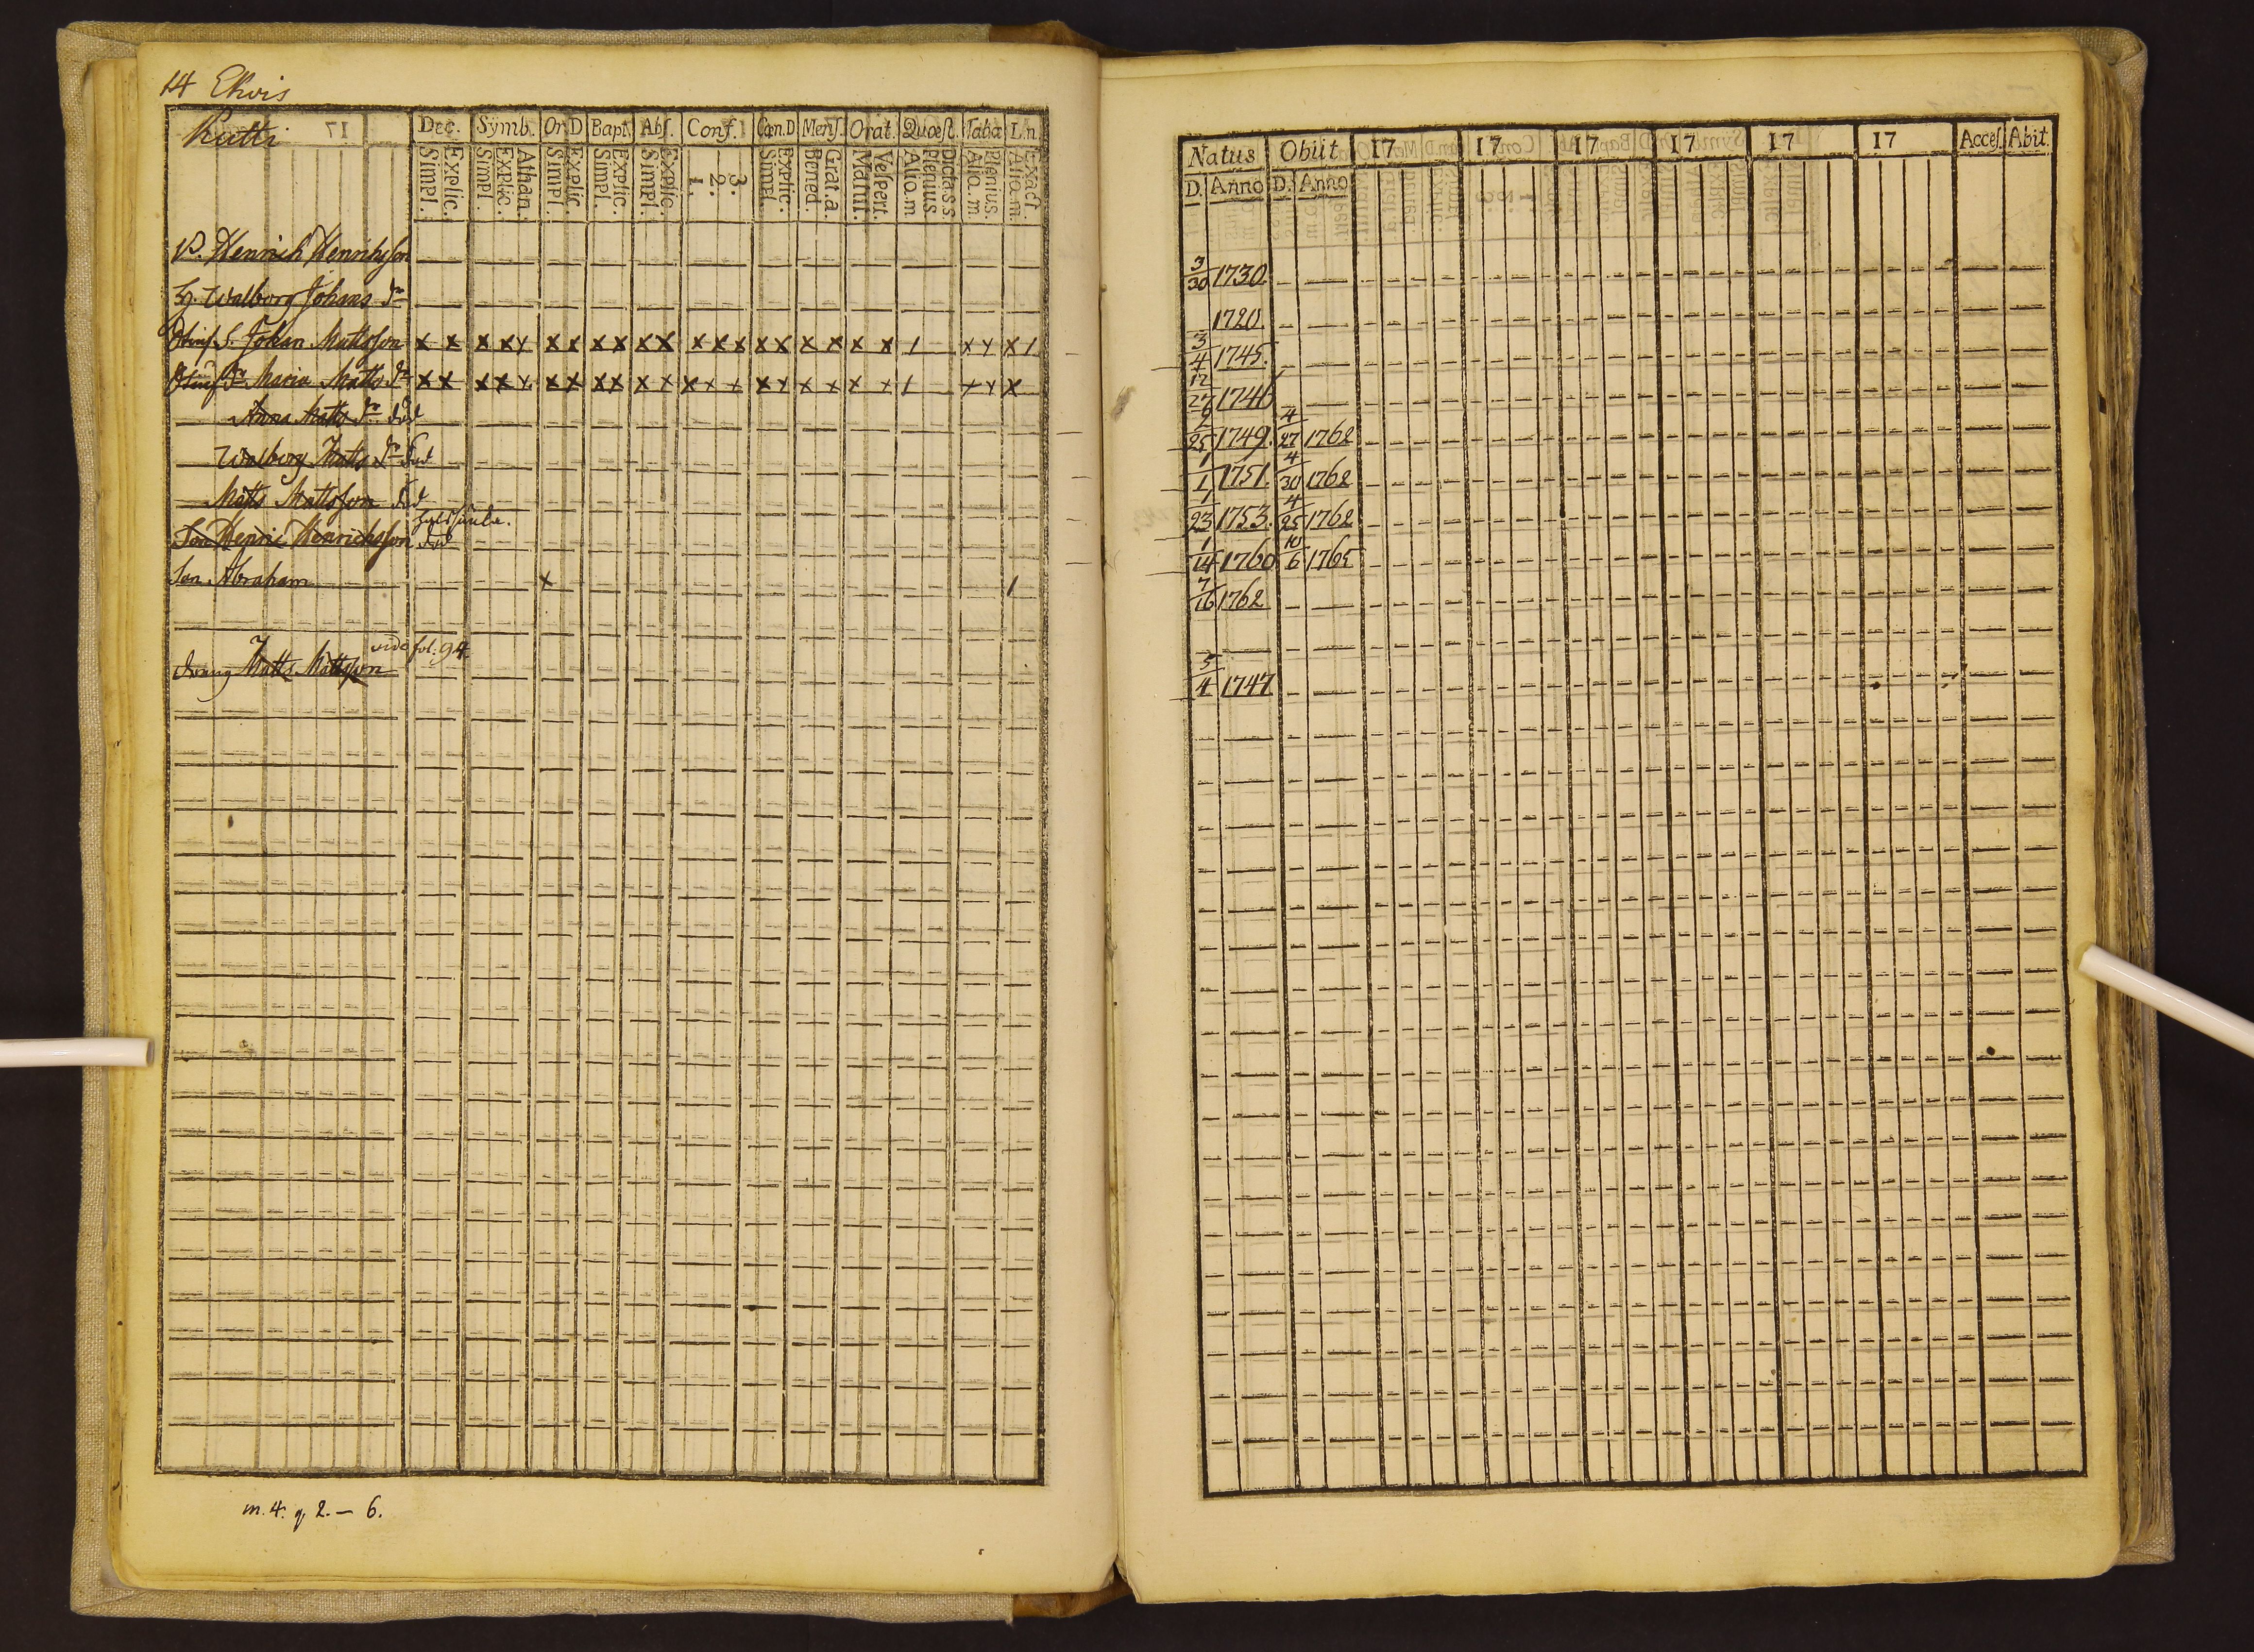 14 Ekois
Rutti 17 Dec. Symb. Or.D Bapt. Abs. Conf. Cœn.D Mens. Orat. Quœst. Taba L.n.
Simpl. Explic. Simpl. Explic. Athan. Simpl. Explic. Simpl. Explic. Simpl. Explic. 1. 2. 3. Simpl. Explic. Bened. Grat.a. Matut. Vespert. Alio.m Plenius. Dicta.s.s Alio.m. Plenius. Alio.m. Exact.
Natus Obiit 17 17 17 17 17 17 Acces. Abit.
D. Anno D. Anno
V. Henrich Henrichsson 3/30 1730.
Hu. Walborg Johans dr 1720.
S. Johan Mattsson x x x x y x x x x x x x x x x x x x x x / x y x / 3/4 1745.
dr Maria Matts dr x x x x y x x x x x x x x x x y x x x x / x y x 12/27 1746
Anna Matts dr död 2/25 1749. 4/27 1762
Walborg Matts dr död 1/1 1751. 4/30 1762
Matts Mattsson död 1/23 1753. 4/25 1762
Son Henric Henrichsson död 1/14 1760 10/6 1765
Son Abraham x / 7/16 1762
vide fol. 94.
dräng Matts Mattsson 5/4 1747
m. 4. q 2. — 6.